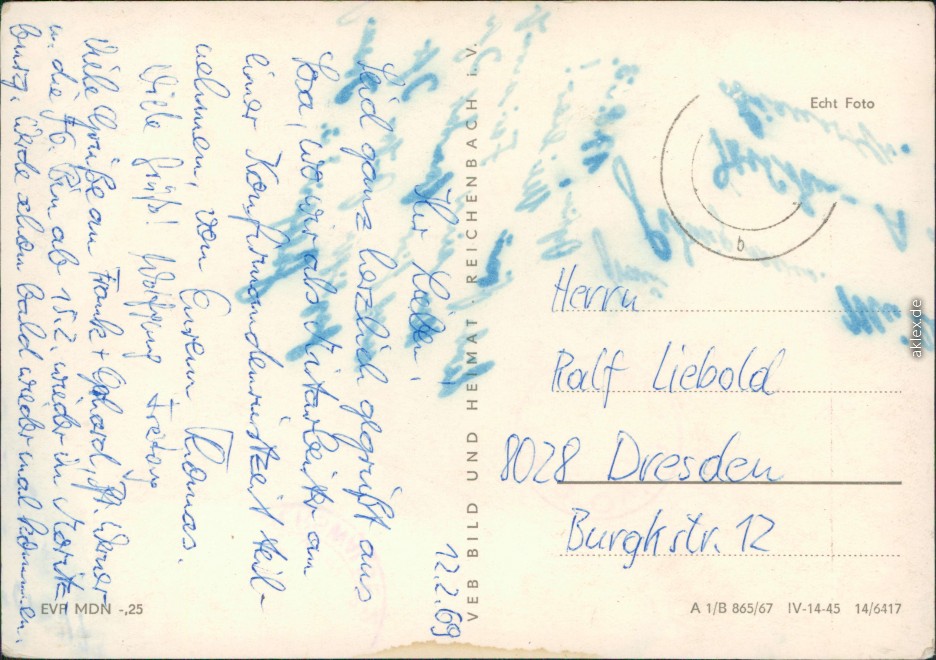 12.2.69
Ihr Lieben!
Seid ganz herzlich gegrüßt aus
wo wir als Mitarbeiter an
einer Konfirmandenrüstzeit teil-
nehmen, von Eurem Thomas.
Viele Grüße! Wolfgang
Viele Grüße an Frank + Gerhard,
u. die JG. Bin ab 15.2. wieder in Moritz-
burg. Werde schon bald wieder mal kommen.
VEB BILD UND HEIMAT · REICHENBACH i. V.
EVP MDN -,25
Echt Foto
b
Herrn
Ralf Liebold
8028 Dresden
Burgkstr. 12
A 1/B 865/67 IV-14-45 14/6417
aklex.de